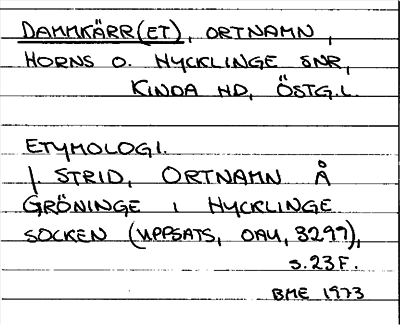 DAMMKÄRR(ET), ORTNAMN,
HORNS O. HYCKLINGE SNR,
KINDA HD, ÖSTG.L.
ETYMOLOGI.
J. STRID, ORTNAMN Å
GRÖNINGE I HYCKLINGE
SOCKEN (UPPSATS, OAU, 3299),
S. 23 F.
BME 1973